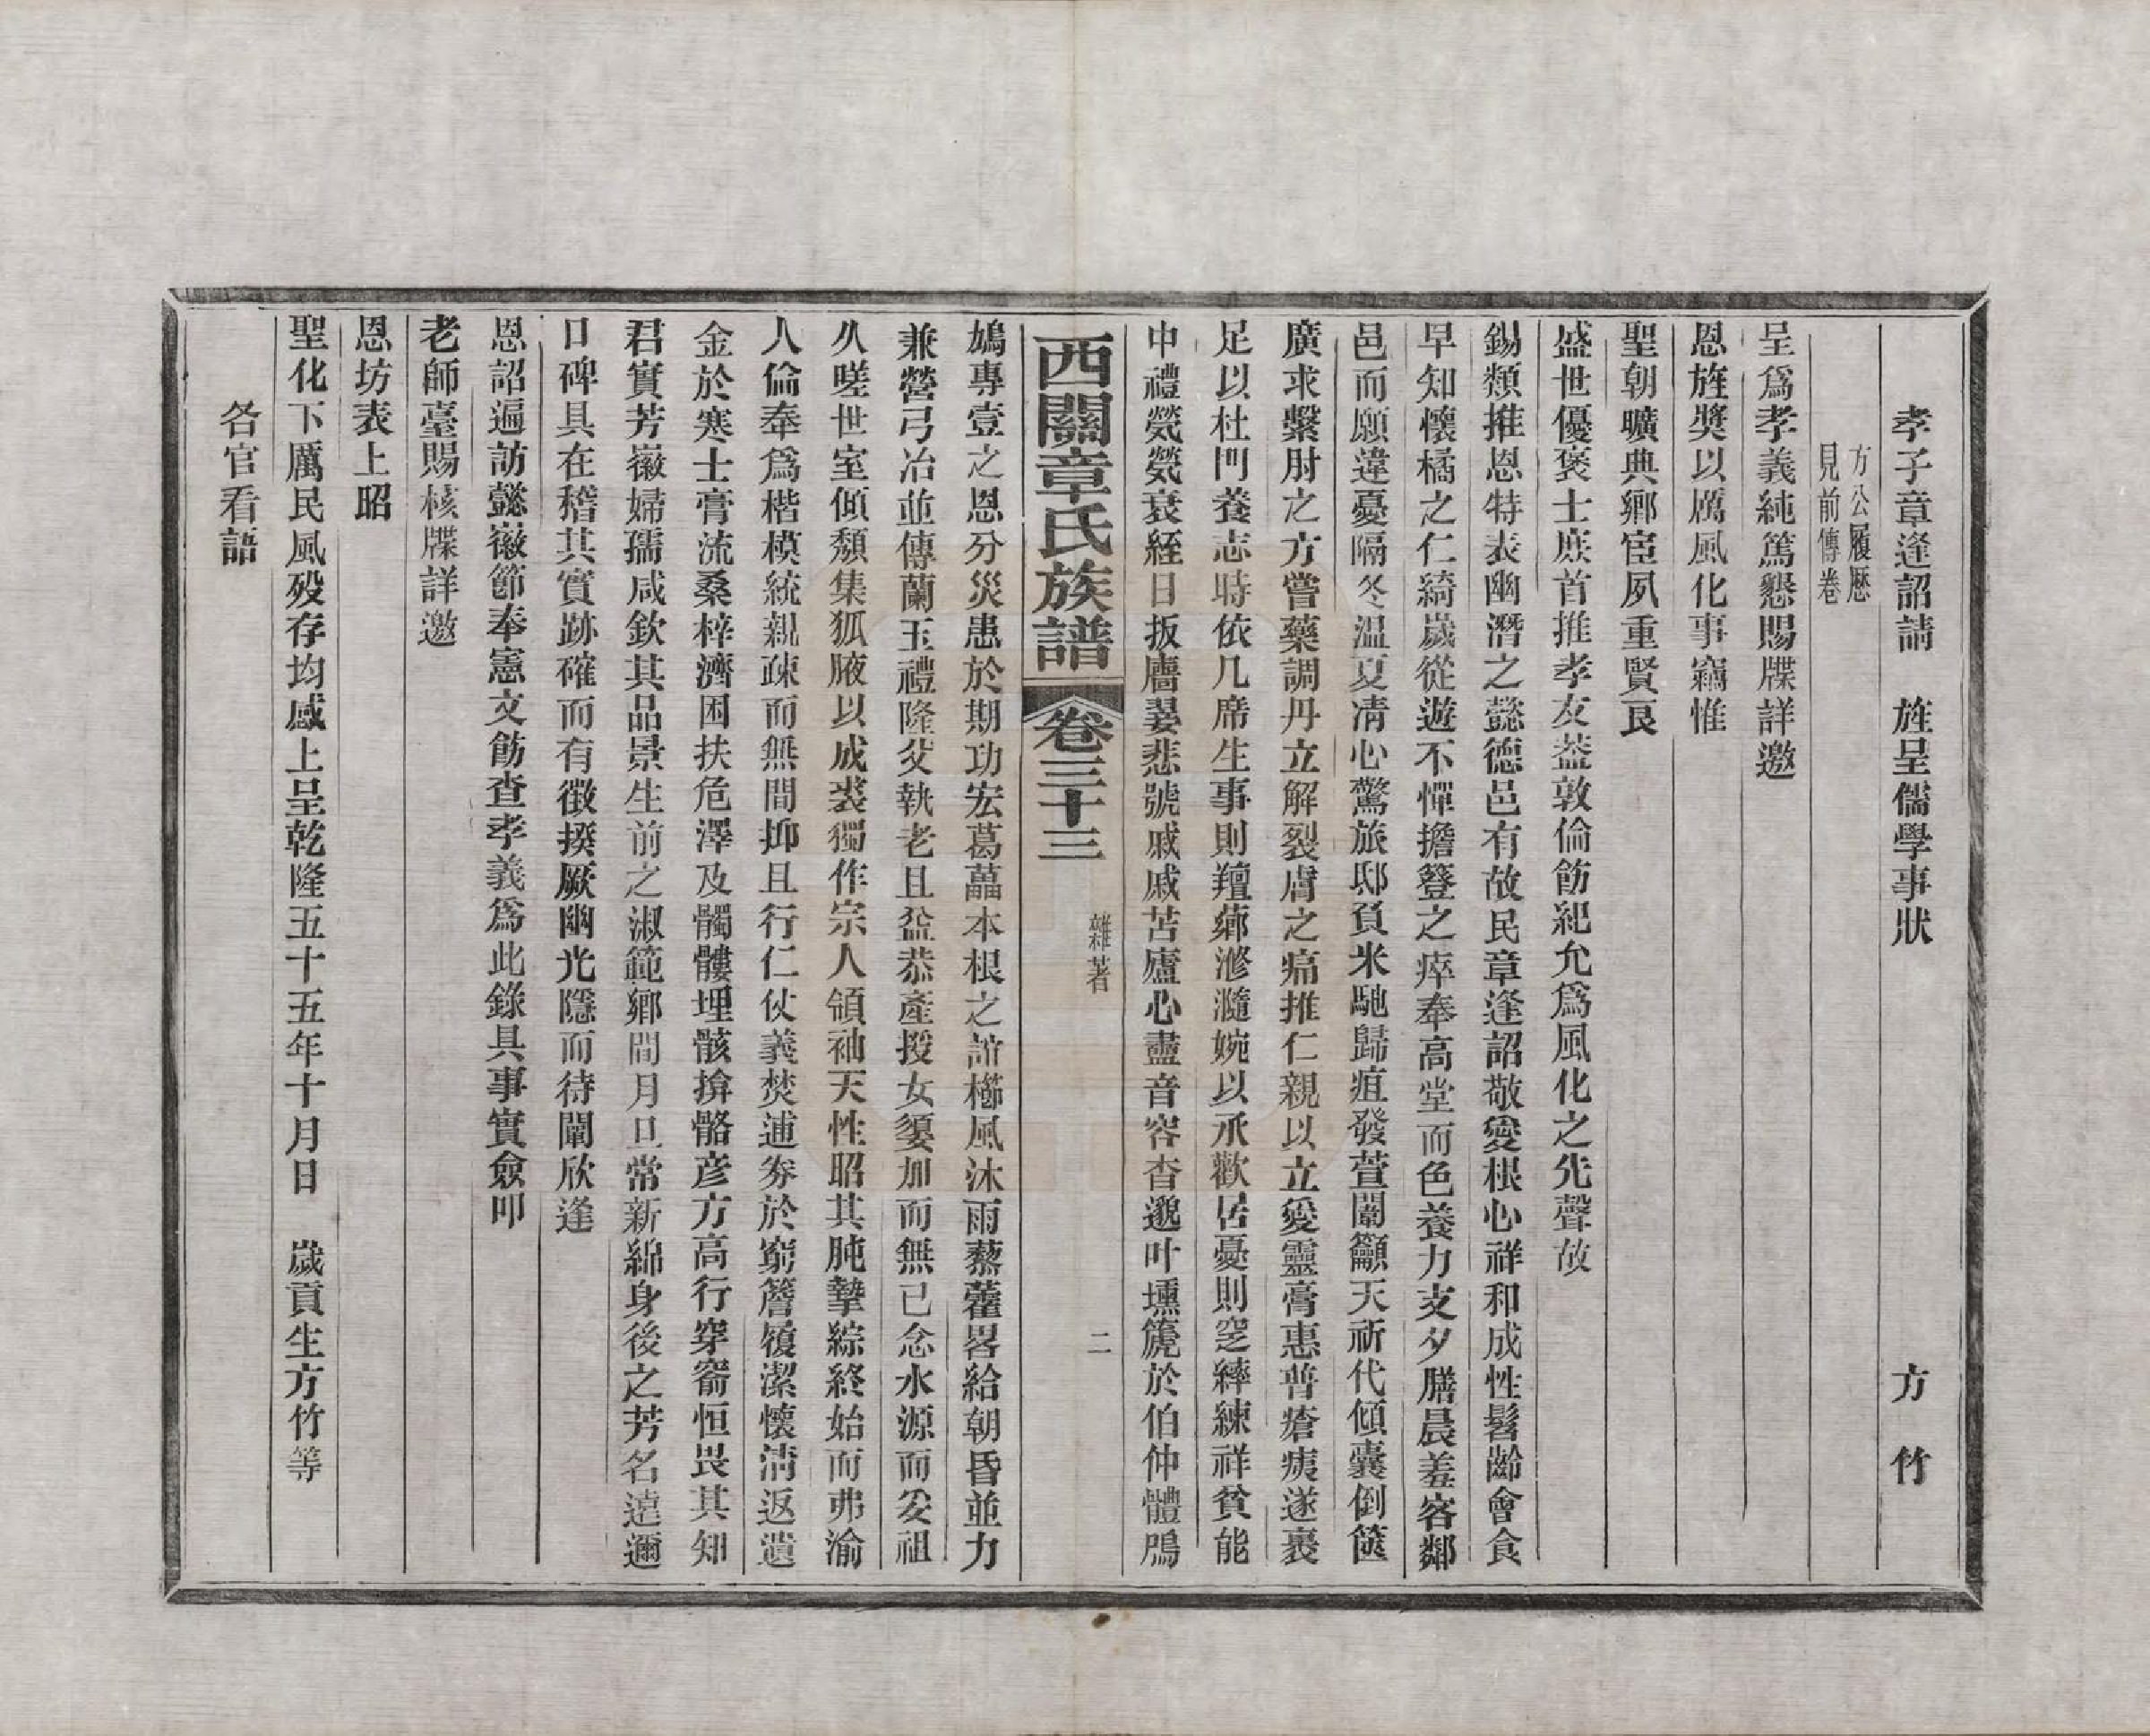 孝子章逢詔請　旌呈儒學事狀　方　竹
方公履歷
見前傳卷
呈爲孝義純篤懇賜牒詳邀
恩旌獎以厲風化事竊惟
聖朝曠典鄉宦夙重賢良
盛世優褒士庶首推孝友葢敦倫飭紀允爲風化之先聲故
錫類推恩特表幽潛之懿德邑有故民章逢詔敬愛根心祥和成性髫齡會食
早知懷橘之仁綺歲從遊不憚擔簦之瘁奉高堂而色養力支夕膳晨羞客鄰
邑而願違憂隔冬溫夏凊心驚旅邸負米馳歸疽發萱闈籲天祈代傾囊倒篋
廣求繫肘之方嘗藥調丹立解裂膚之痛推仁親以立愛靈膏惠普瘡痍遂裹
足以杜門養志時依几席生事則羶薌滫瀡婉以承歡居憂則窆縴練祥貧能
中禮煢煢衰絰日扳牆翣悲號戚戚苫廬心盡音容杳邈叶壎篪於伯仲體鳲
西關章氏族譜　卷三十三　雜著　二
鳩專壹之恩分災患於期功宏葛藟本根之誼櫛風沐雨藜藿畧給朝昏並力
兼營弓冶並傳蘭玉禮隆父執老且益恭產授女嬃加而無已念水源而妥祖
久嗟世室傾頽集狐腋以成裘獨作宗人領袖天性昭其肫摯綜終始而弗渝
人倫奉爲楷模統親疎而無間抑且行仁仗義焚逋券於窮簷履潔懷清返遺
金於寒士膏流桑梓濟困扶危澤及髑髏埋骸揜骼彥方高行穿窬恒畏其知
君實芳徽婦孺咸欽其品景生前之淑範鄉閭月旦常新綿身後之芳名遠邇
口碑具在稽其實跡確而有徵揆厥幽光隱而待闡欣逢
恩詔遍訪懿徽節奉憲文飭查孝義爲此錄具事實僉叩
老師臺賜核牒詳邀
恩坊表上昭
聖化下厲民風歿存均感上呈乾隆五十五年十月日　歲貢生方竹等
各官看語